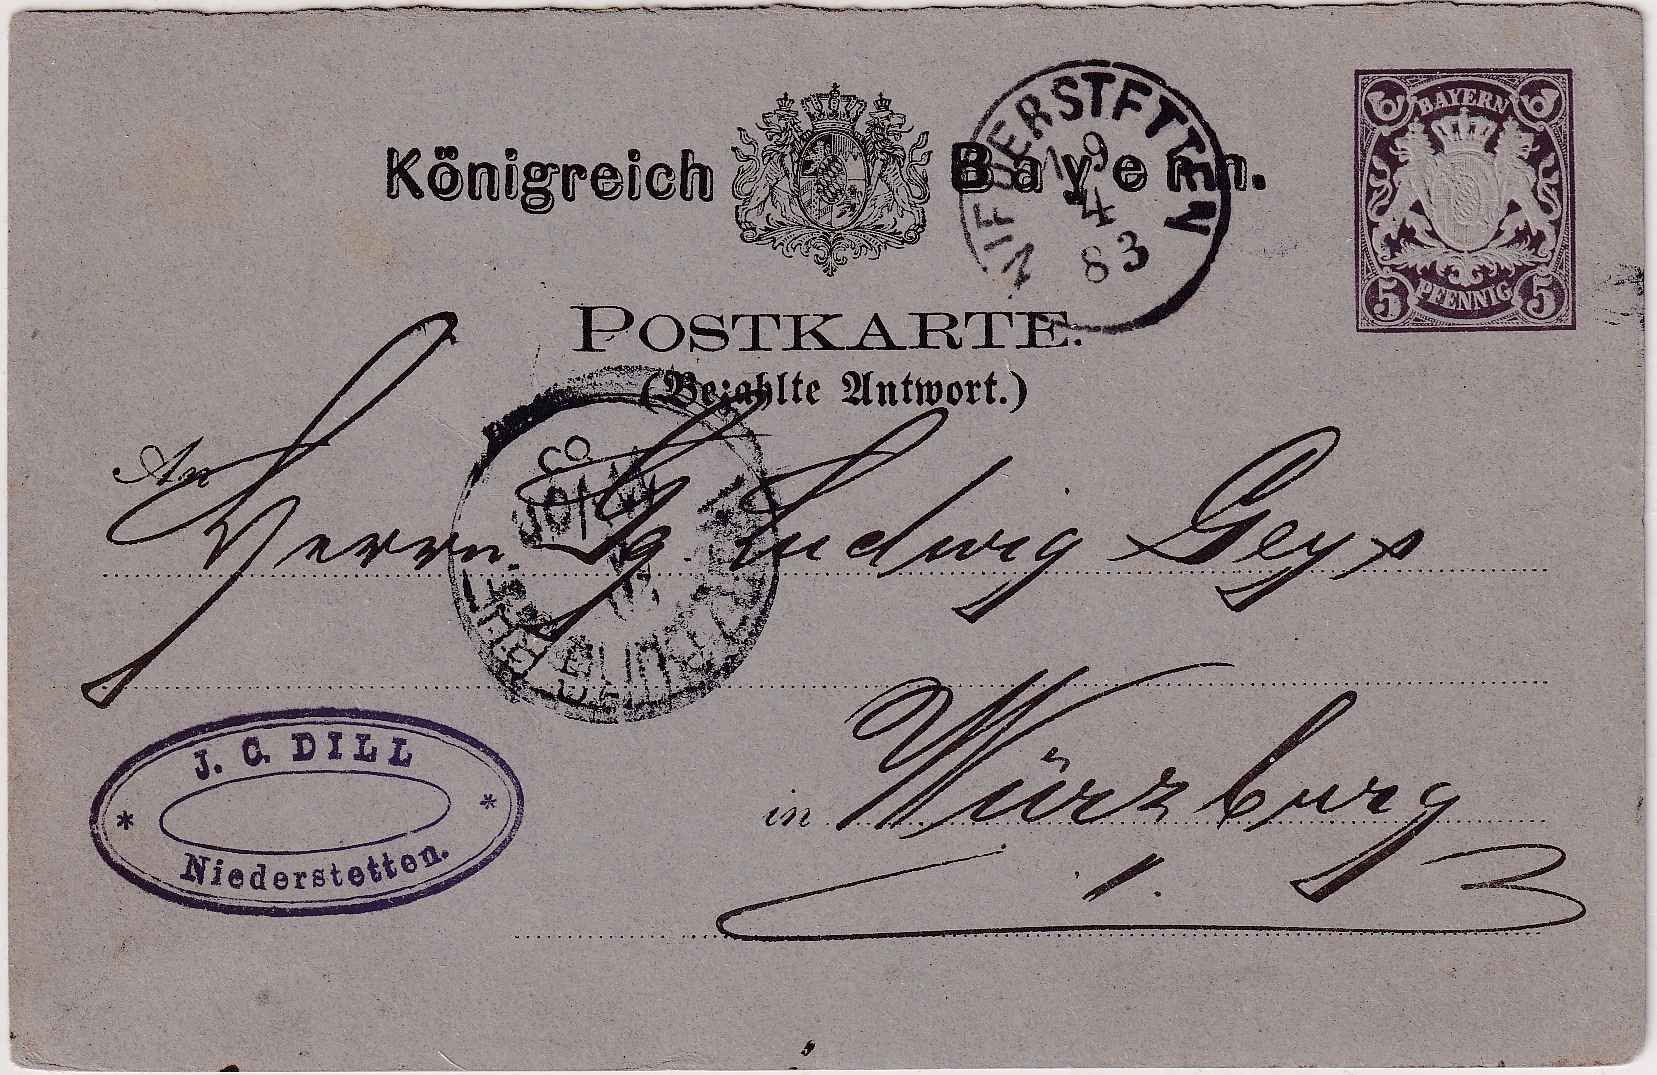 Königreich Bayern.
BAYERN
5 PFENNIG 5
NIEDERSTETTEN
19
4
83
POSTKARTE.
(Bezahlte Antwort.)
An
Herrn Gg Ludwig Geys
in Würzburg
J. C. DILL
* *
Niederstetten.